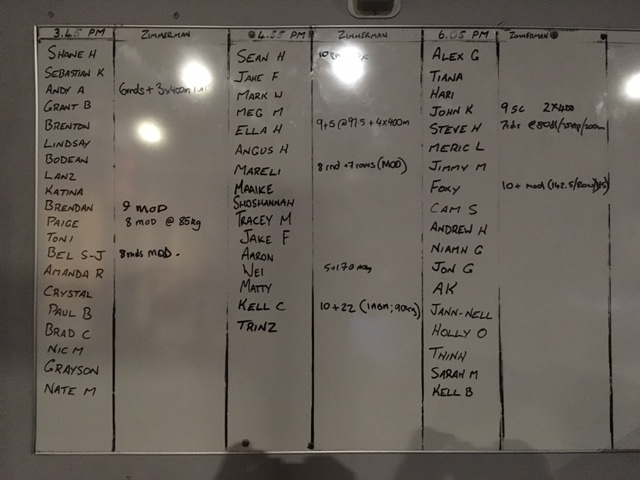 3.45 PM
ZIMMERMAN
SHANE H
SEBASTIAN K
ANDY A
6rnds + 3x400m
GRANT B
BRENTON
LINDSAY
BODEAN
LANZ
KATINA
BRENDAN
9 MOD
PAIGE
8 MOD @ 85kg
TONI
BEL S-J
8rnds MOD.
AMANDA R
CRYSTAL
PAUL B
BRAD C
NIC M
GRAYSON
NATE M
4.55 PM
ZIMMERMAN
SEAN H
JAKE F
MARK W
MEG M
ELLA H
9+5 @97.5 + 4x400m
ANGUS H
MARELI
8 rnd +7 rows (MOD)
MAAIKE
SHOSHANNAH
TRACEY M
JAKE F
AARON
WEI
5+170
MATTY
KELL C
10+22
TRINZ
6.05 PM
ZIMMERMAN
ALEX G
TIANA
HARI
JOHN K
9 SC 2x400
STEVE H
MERIC L
JIMMY M
FOXY
10+ mod
CAM S
ANDREW H
NIAMH G
JON G
AK
JANN-NELL
HOLLY O
THINH
SARAH M
KELL B